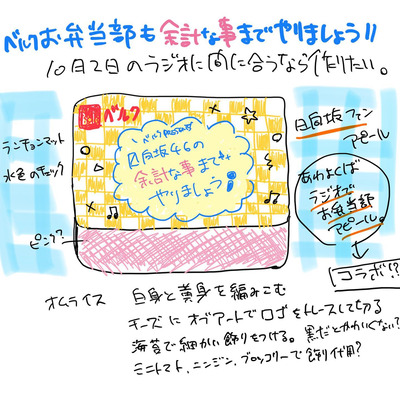 ベルクお弁当部も余計な事までやりましょう!!
10月2日のラジオに間に合うなら作りたい。
ベルク
ベルクpresents
日向坂46の
余計な事まで
やりましょう
ランチョンマット
水色のチェック
ピンク?
日向坂ファン
アピール
あわよくば
ラジオで
お弁当部
アピール。
コラボ!?
オムライス
白身と黄身を編みこむ
チーズにオブアートでロゴをトレースして切る
海苔で細かい飾りをつける。黒だとかわいくない?
ミニトマト、ニンジン、ブロッコリーで飾り代用?